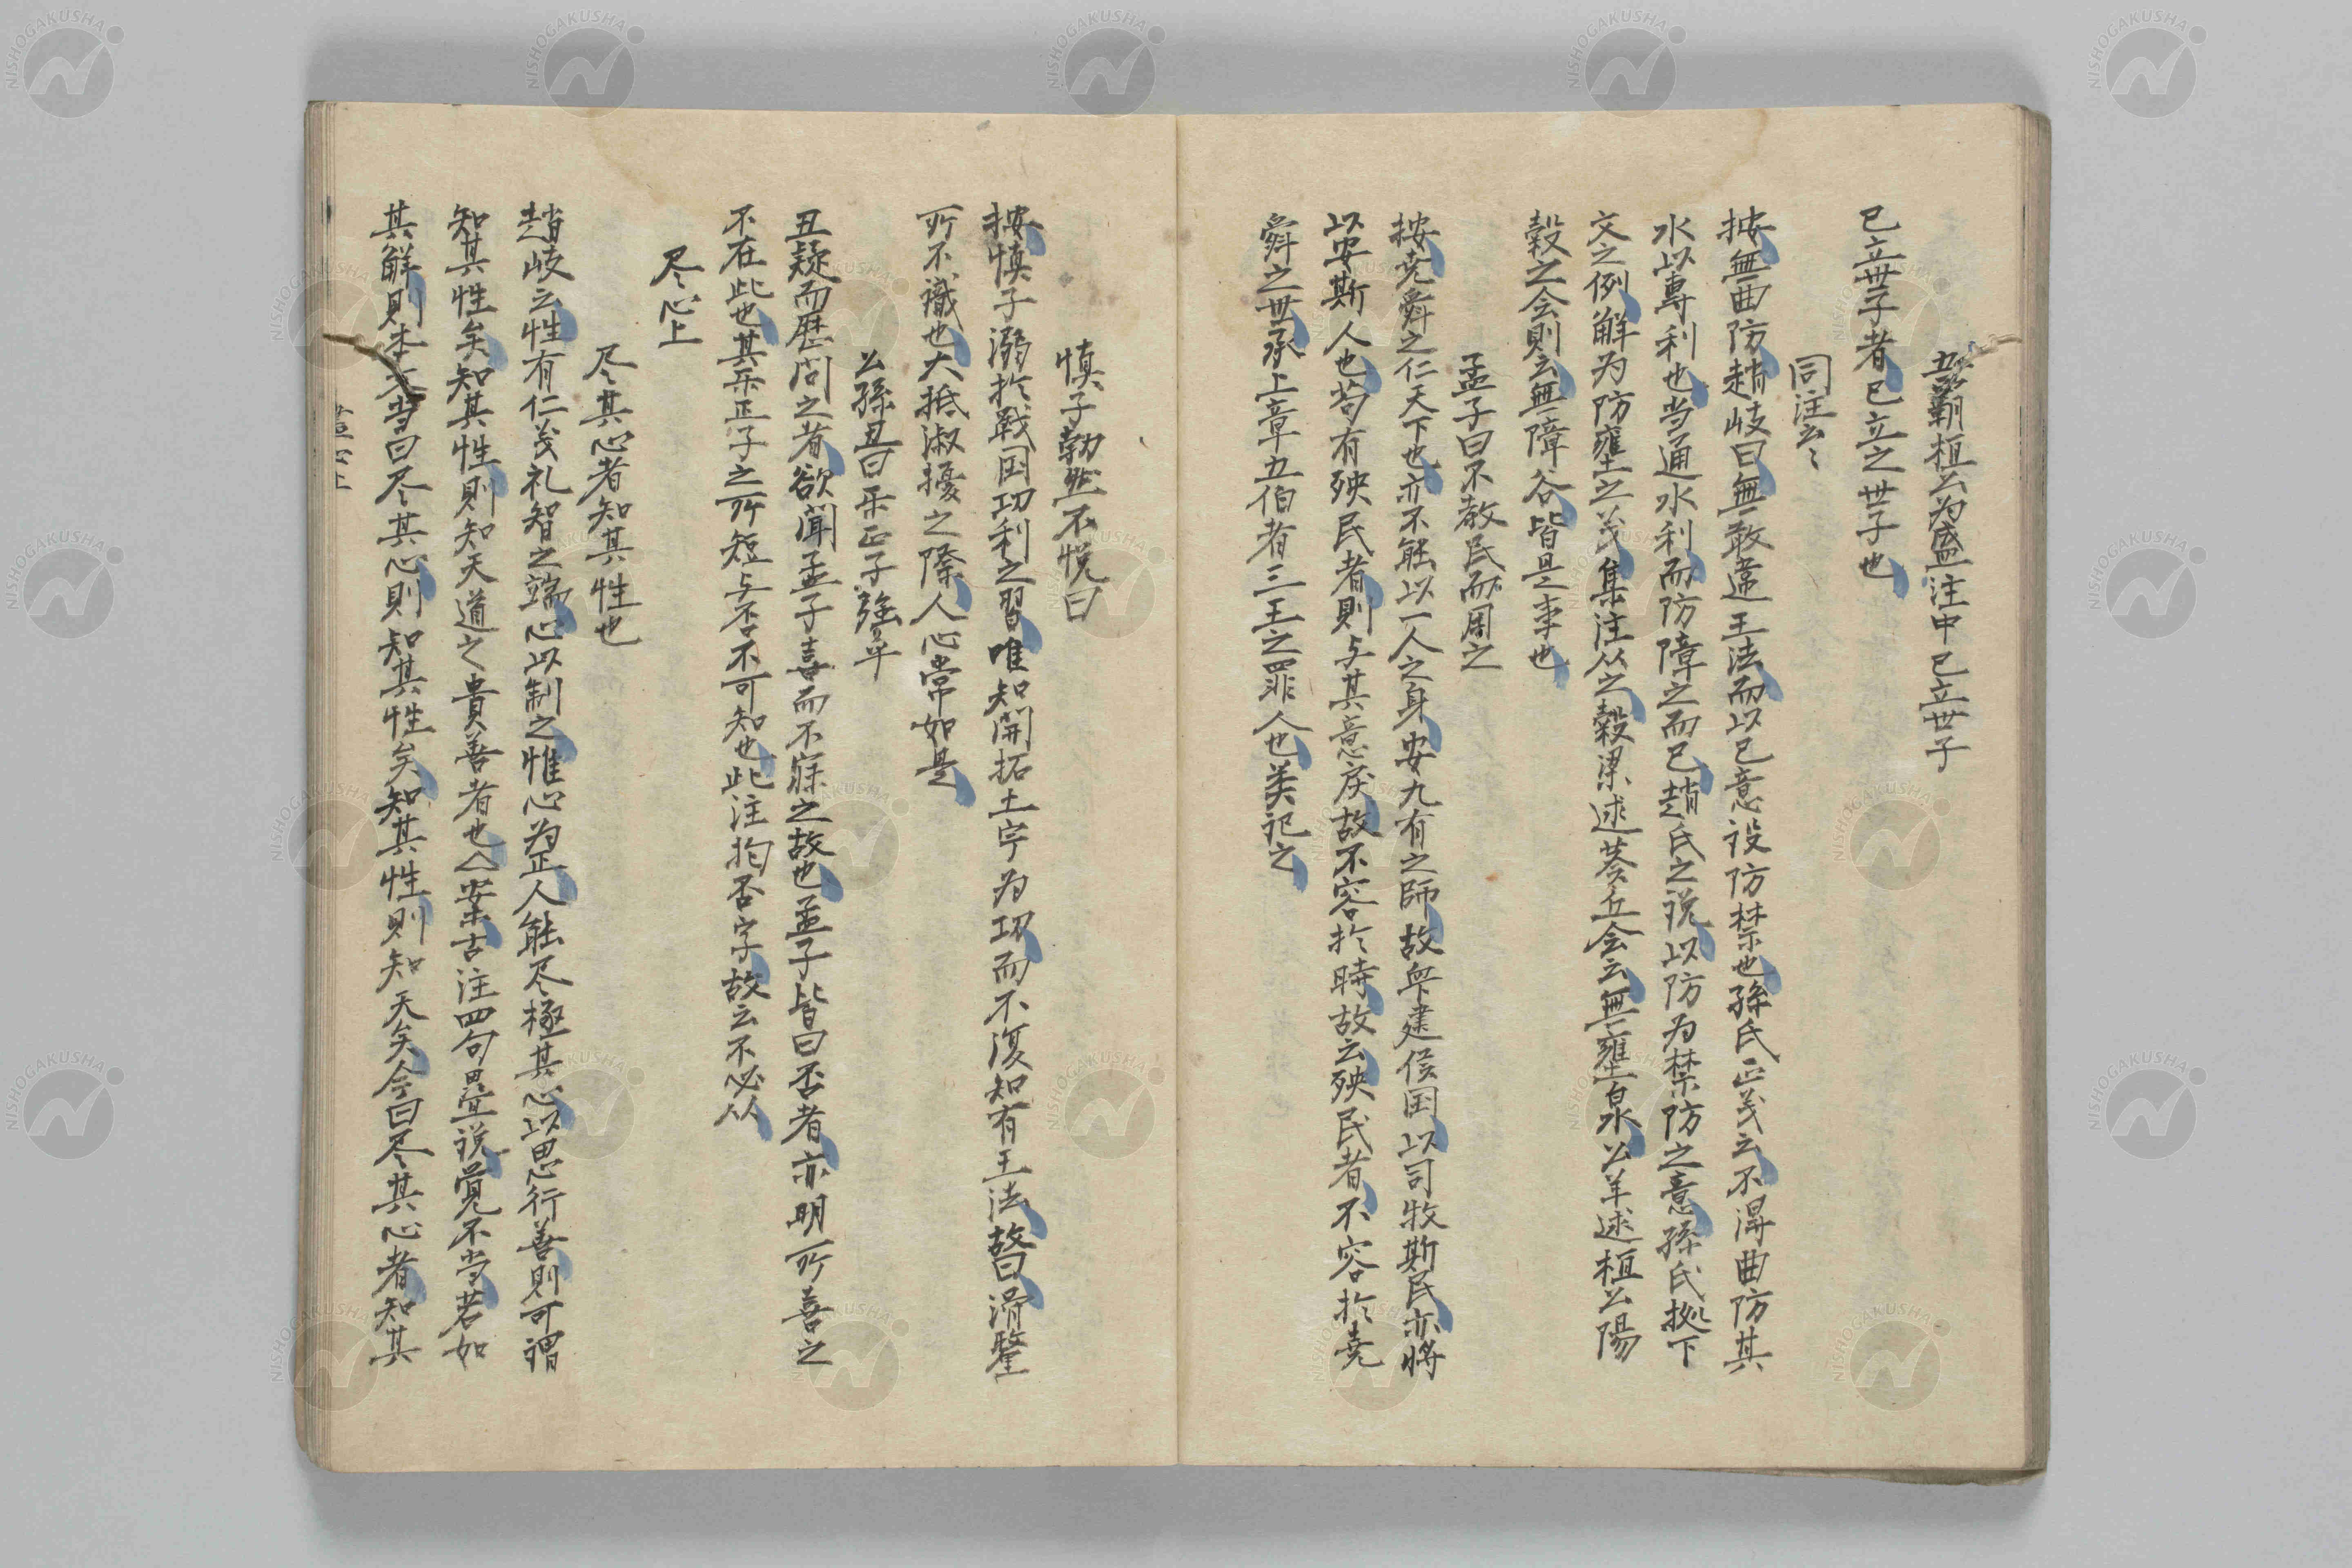 五霸桓公為盛注中已立世子
已立世子者已立之世子也
同注云々
按無曲防趙岐曰無敢違王法而以己意設防禁也孫氏正義云不得曲防其
水以専利也当通水利而防障之而已趙氏之説以防為禁防之意孫氏拠下
文之例解為防壅之義集注从之穀梁述葵丘会云無壅泉公羊述桓公陽
穀之会則云無障谷皆是事也
孟子曰不教民而用之
按堯舜之仁天下也亦不能以一人之身安九有之師故毎建侯国以司牧斯民亦将
以安斯人也苟有殃民者則与其意戻故不容於時故云殃民者不容於堯
舜之世承上章五伯者三王之罪人也美記之
慎子勃然不悦曰
按慎子溺於戦国功利之習唯知開拓土宇為功而不復知有王法故曰滑釐
所不識也大抵淑擾之際人心常如是
公孫丑曰楽正子強乎
丑疑而歴問之者欲聞孟子喜而不寐之故也孟子皆曰否者亦明所喜之
不在此也其楽正子之所短与否不可知也此注拘否字故云不必从
尽心上
尽其心者知其性也
趙岐云性有仁義礼智之端心以制之惟心為正人能尽極其心以思行善則可謂
知其性矣知其性則知天道之貴善者也△案古注四句畳説覚不当若如
其解則本文当曰尽其心則知其性矣知其性則知天矣今曰尽其心者知其